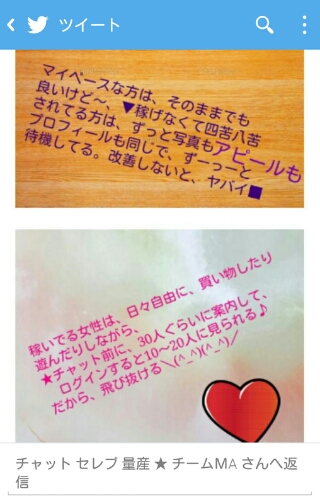 ツイート
マイペースな方は、そのままでも
良いけど〜、▼稼げなくて四苦八苦
されてる方は、ずっと写真もアピールも
プロフィールも同じで、ずーっーと
待機してる。改善しないと、ヤバイ■
稼いでる女性は、日々自由に、買い物したり
遊んだりしながら、
★チャット前に、30人ぐらいに案内して、
ログインすると10〜20人に見られる♪
だから、飛び抜ける＼(^_^)(^_^)／
チャット セレブ 量産 ★ チームMA さんへ返
信